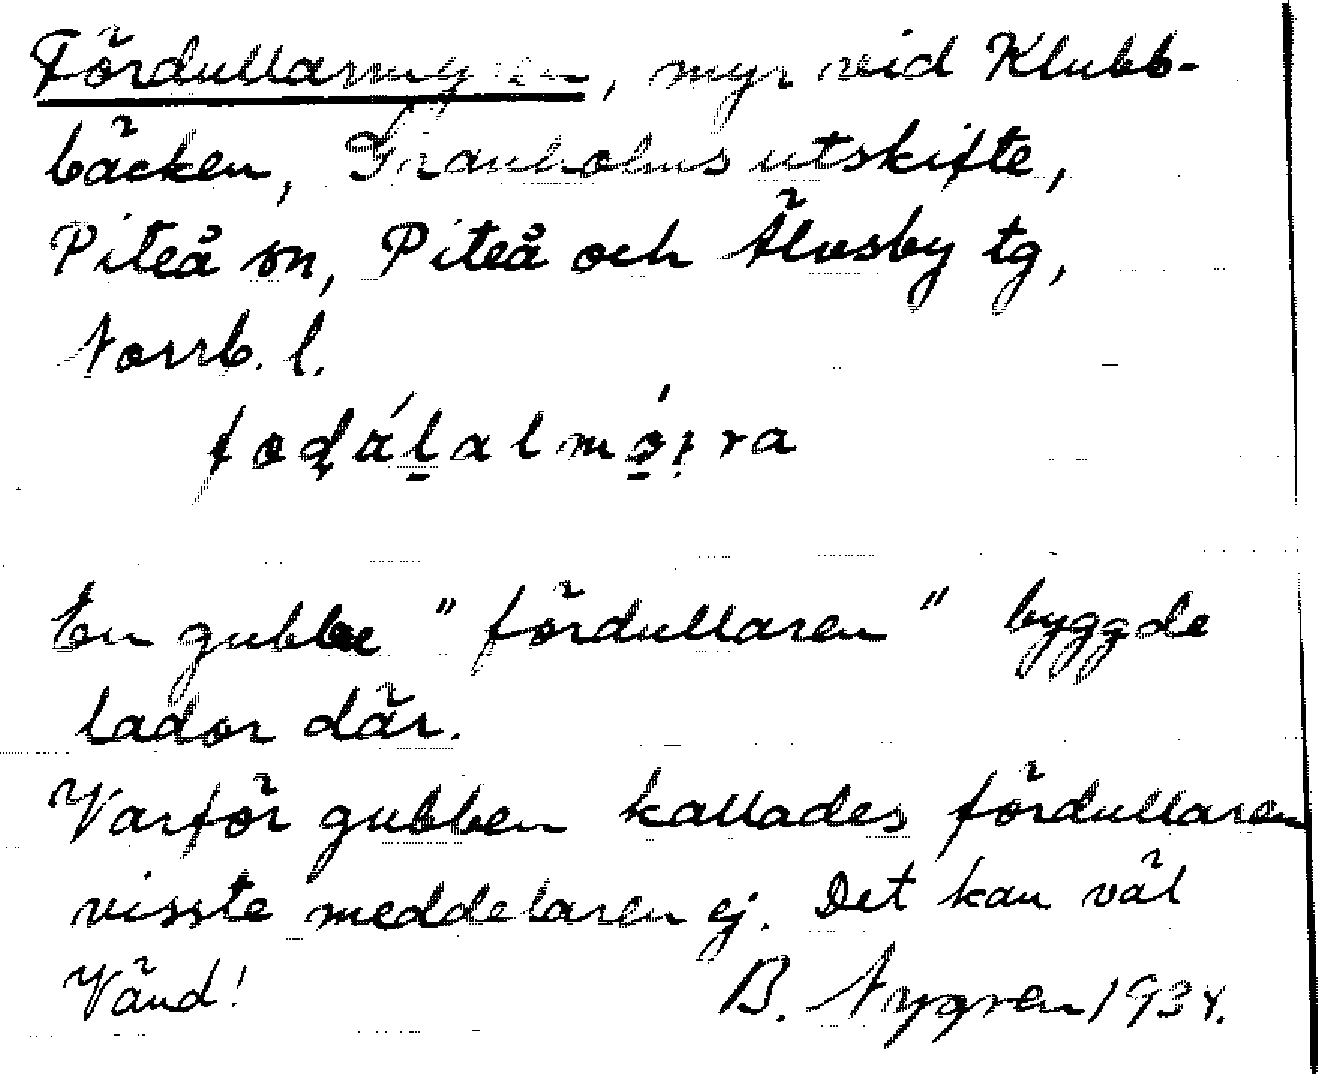 Fördullarmyren, myr vid Klubb-
bäcken, Granholms utskifte,
Piteå sn, Piteå och Älvsby tg,
Norrb. l.
En gubbe "fördullaren" byggde
lador där.
Varför gubben kallades fördullaren
visste meddelaren ej. Det kan väl
Vänd! B. Nygren 1934.